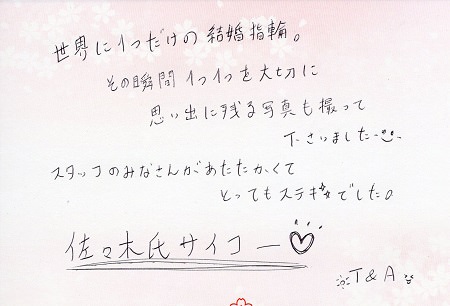 世界に1つだけの結婚指輪。
その瞬間1つ1つを大切に
思い出に残る写真も撮って
下さいました
スタッフのみなさんがあたたかくて
とってもステキでした。
佐々木氏サイコー♡
T&A